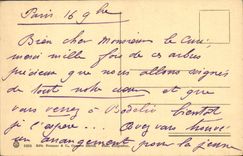 Paris 16 9bre
Bien cher Monsieur le Curé
merci mille fois de ces arbres
précieux que nous allons soigner
de tout notre cœur et que
vous verrez à bientôt
j'espère... Avez vous
un arrangement pour la